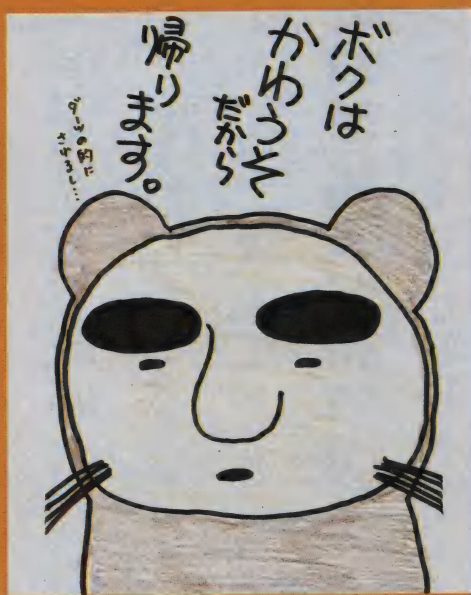 ボクは
かわうそ
だから
帰り
ます。
ダーツの的に
させるし…